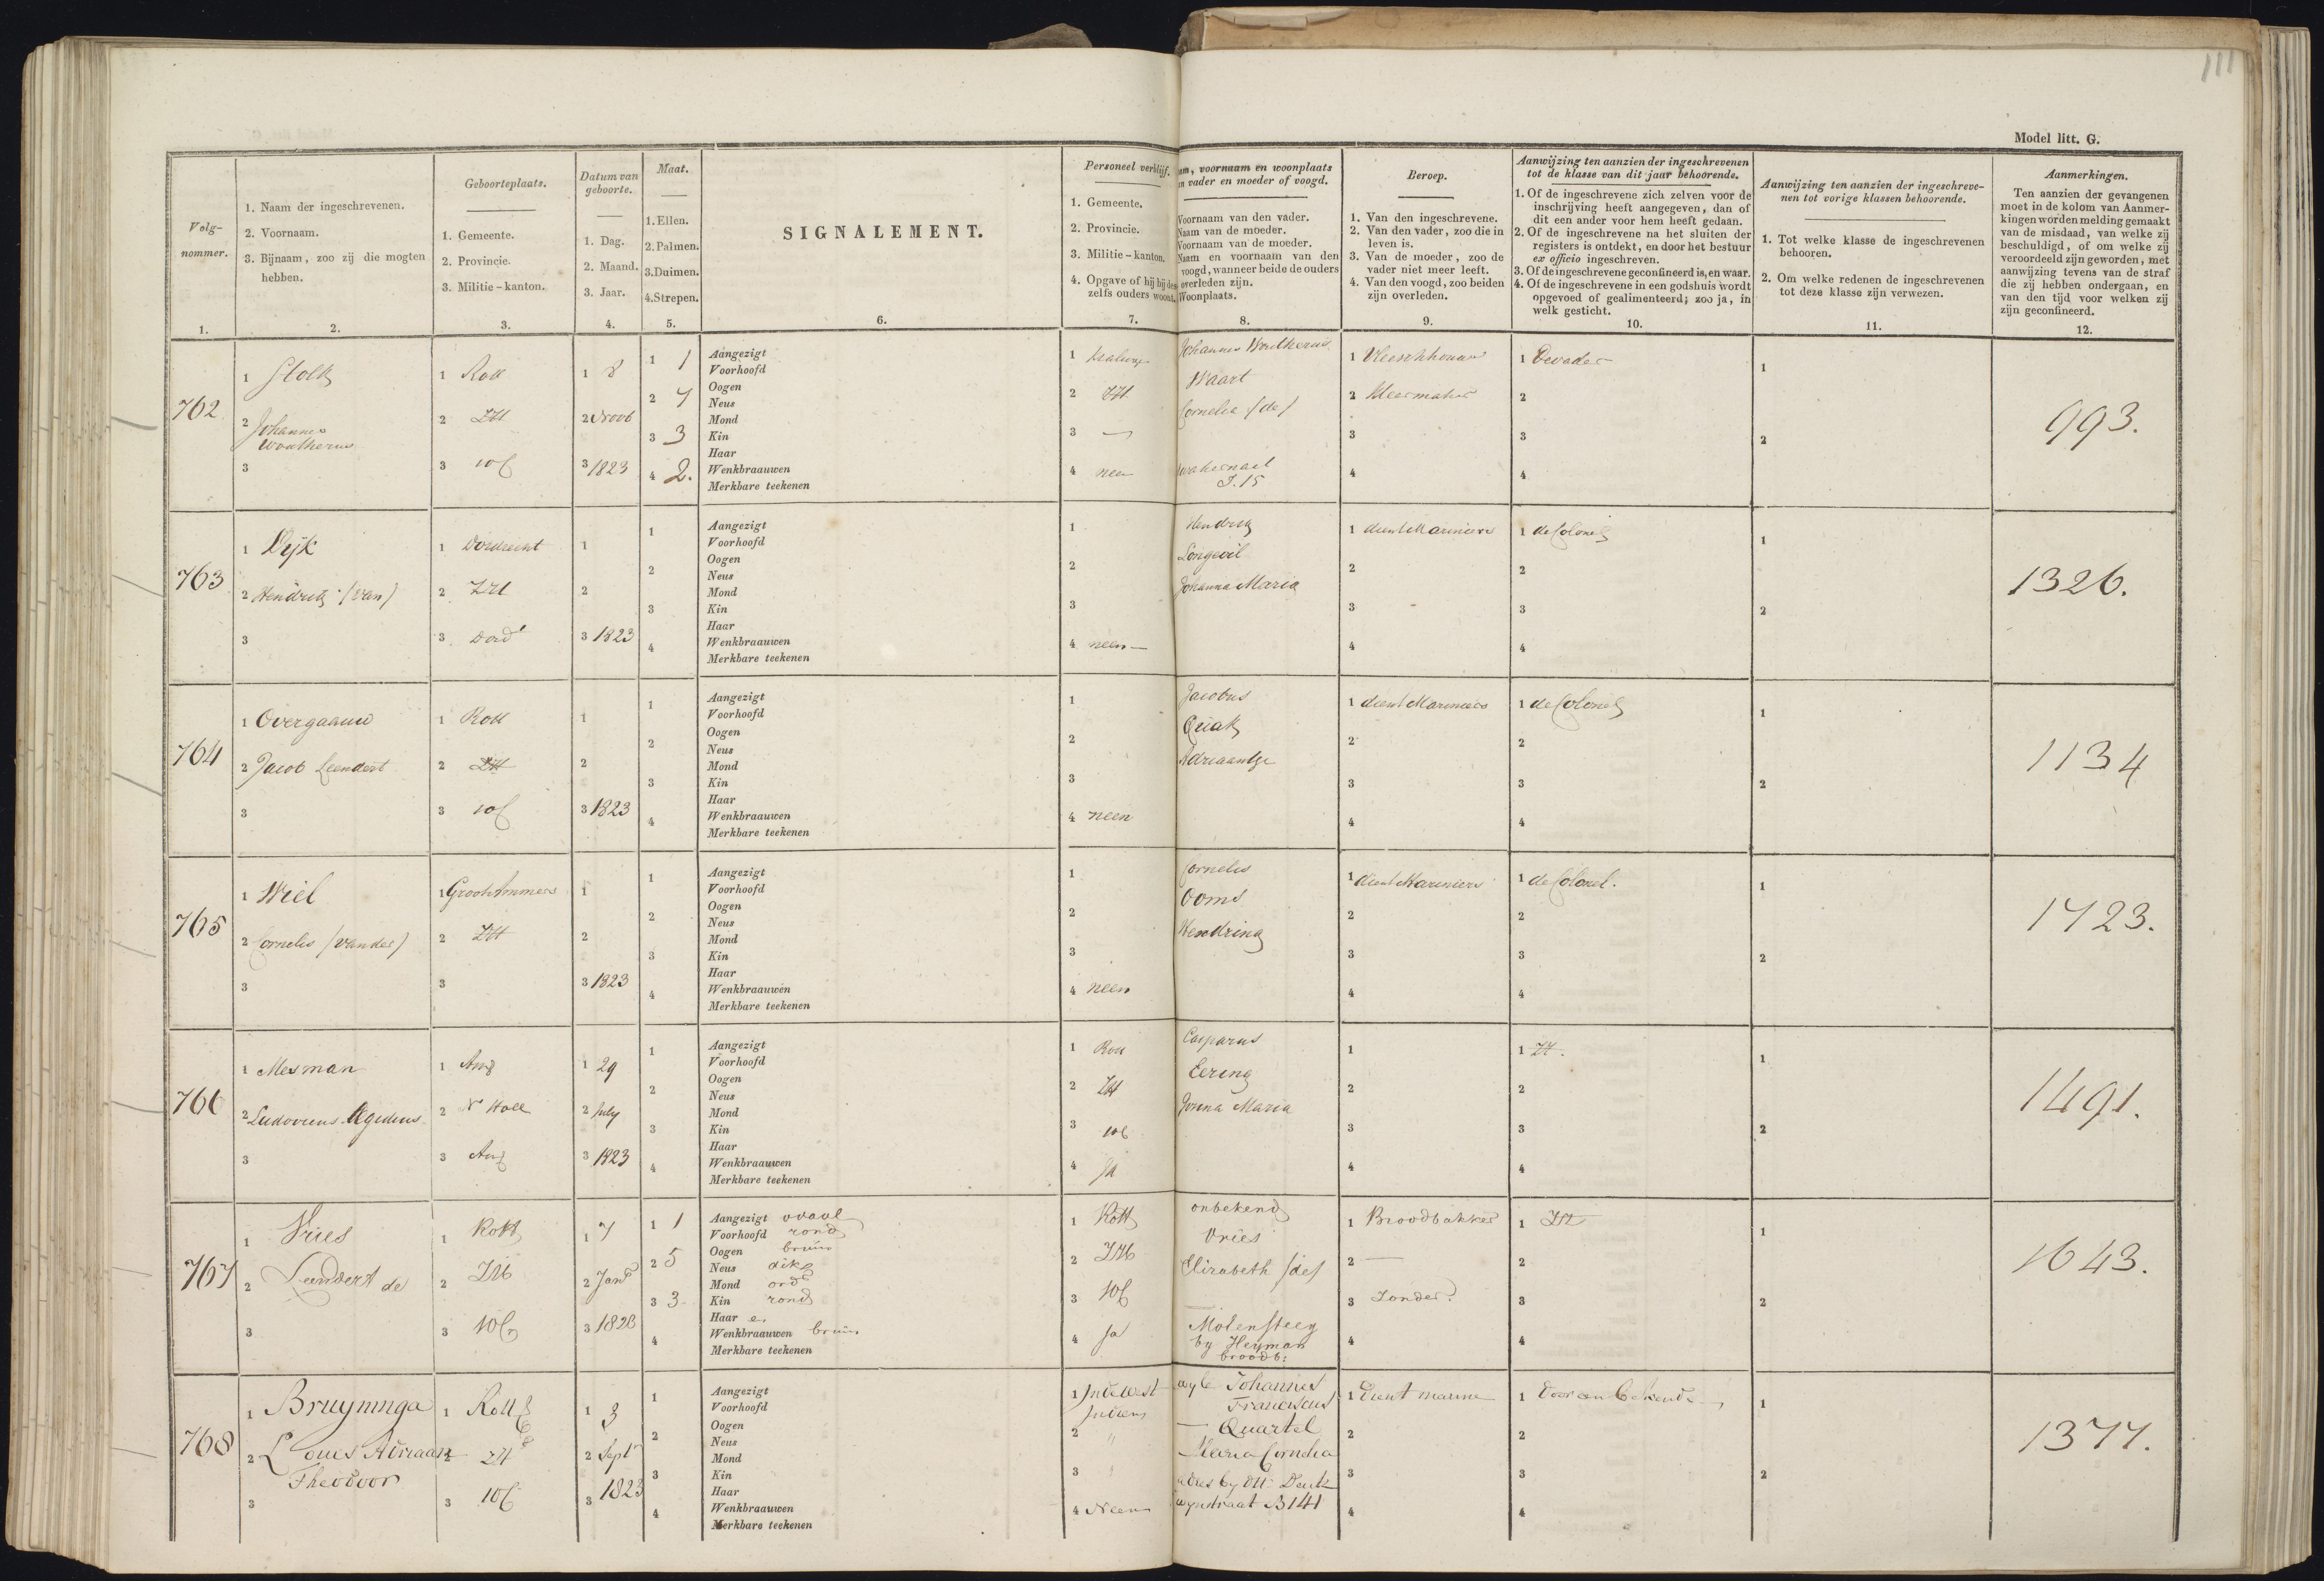 111
Model litt. G.
Volgnommer.
1.
1. Naam der ingeschrevenen.
2. Voornaam.
3. Bijnaam, zoo zij die mogten
hebben.
2.
Geboorteplaats.
1. Gemeente.
2. Provincie.
3. Militie-kanton.
3.
Datum van
geboorte.
1. Dag.
2. Maand.
3. Jaar.
4.
Maat.
1. Ellen.
2. Palmen.
3. Duimen.
4. Strepen.
5.
SIGNALEMENT.
6.
Personeel verblijf.
1. Gemeente.
2. Provincie.
3. Militie-kanton.
4. Opgave of hij bij des
zelfs ouders woont.
7.
am, voornaam en woonplaats
an vader en moeder of voogd.
Voornaam van den vader.
Naam van de moeder.
Voornaam van de moeder.
Naam en voornaam van den
voogd, wanneer beide de ouders
overleden zijn.
Woonplaats.
8.
Beroep.
1. Van den ingeschrevene.
2. Van den vader, zoo die in
leven is.
3. Van de moeder, zoo de
vader niet meer leeft.
4. Van den voogd, zoo beiden
zijn overleden.
9.
Aanwijzing ten aanzien der ingeschrevenen
tot de klasse van dit jaar behoorende.
1. Of de ingeschrevene zich zelven voor de
inschrijving heeft aangegeven, dan of
dit een ander voor hem heeft gedaan.
2. Of de ingeschrevene na het sluiten der
registers is ontdekt, en door het bestuur
ex officio ingeschreven.
3. Of de ingeschrevene geconfineerd is, en waar.
4. Of de ingeschrevene in een godshuis wordt
opgevoed of gealimenteerd; zoo ja, in
welk gesticht.
10.
Aanwijzing ten aanzien der ingeschrevenen
tot vorige klassen behoorende.
1. Tot welke klasse de ingeschrevenen
behooren.
2. Om welke redenen de ingeschrevenen
tot deze klasse zijn verwezen.
11.
Aanmerkingen.
Ten aanzien der gevangenen
moet in de kolom van Aanmerkingen
worden melding gemaakt
van de misdaad, van welke zij
beschuldigd, of om welke zij
veroordeeld zijn geworden, met
aanwijzing tevens van de straf
die zij hebben ondergaan, en
van den tijd voor welken zij
zijn geconfineerd.
12.
762
1 Stolk
2 Johannes
Woutherus
3
1 Rott
2 ZH
3 10b
1 8
2 Novb
3 1823
1 1
2 7
3 3
4 2.
Aangezigt
Voorhoofd
Oogen
Neus
Mond
Kin
Haar
Wenkbraauwen
Merkbare teekenen
1
2 ZH
3 —
4 neen
Johannes Woutherus
Waart
Cornelia (de)
J. 15
1 Vleeschhouwer
2 Kleermaker
3
4
1 De vader
2
3
4
1
2
993.
763
1 Dijk
2 Hendrik (van)
3
1 Dordrecht
2 ZH
3 Dord
1
2
3 1823
1
2
3
4
Aangezigt
Voorhoofd
Oogen
Neus
Mond
Kin
Haar
Wenkbraauwen
Merkbare teekenen
1
2
3
4 neen —
Hendrik
Longevil
Johanna Maria
1 dient Mariniers
2
3
4
1 de Colonel
2
3
4
1
2
1326.
764
1 Overgaauw
2 Jacob Leendert
3
1 Rott
2 ZH
3 10b
1
2
3 1823
1
2
3
4
Aangezigt
Voorhoofd
Oogen
Neus
Mond
Kin
Haar
Wenkbraauwen
Merkbare teekenen
1
2
3
4 neen
Jacobus
Quak
Adriaantje
1 dient Mariniers
2
3
4
1 de Colonel
2
3
4
1
2
1134
765
1 Wiel
2 Cornelis (van der)
3
1 Groot Ammers
2 ZH
3
1
2
3 1823
1
2
3
4
Aangezigt
Voorhoofd
Oogen
Neus
Mond
Kin
Haar
Wenkbraauwen
Merkbare teekenen
1
2
3
4 neen
Cornelis
Ooms
Hendrina
1 dient Mariniers
2
3
4
1 de Colonel.
2
3
4
1
2
1723.
766
1 Mesman
2 Ludovicus Egidius
3
1 Amst
2 N Holl
3 Amst
1 29
2 July
3 1823
1
2
3
4
Aangezigt
Voorhoofd
Oogen
Neus
Mond
Kin
Haar
Wenkbraauwen
Merkbare teekenen
1 Rott
2 ZH
3 10b
4 Ja
Casparus
Eering
Maria
1
2
3
4
1 ZH.
2
3
4
1
2
1491.
767
1 Vries
2 Leendert de
3
1 Rott
2 ZH
3 10b
1 7
2 Jan
3 1823
1 1
2 5
3 3
4
Aangezigt ovaal
Voorhoofd rond
Oogen bruin
Neus dik
Mond ord
Kin rond
Haar e.
Wenkbraauwen bruin
Merkbare teekenen
1 Rott
2 ZH
3 10b
4 Ja
onbekend
Vries
Elizabeth (de)
Molensteeg
by Heyman
broodb:
1 Broodbakker
2 —
3 Zonder.
4
1 ZH
2
3
4
1
2
1643.
768
1 Bruyninga
2 Louis Adriaan
Theodoor
3
1 Rott
2 ZH
3 10b
1 3
2 Sept
3 1823
1
2
3
4
Aangezigt
Voorhoofd
Oogen
Neus
Mond
Kin
Haar
Wenkbraauwen
Merkbare teekenen
1 In de West
Indien
2 "
3 "
4 Neen
wyle Johannes
Franciscus
— Quartel
Maria Cornelia
adres by
wynstraat B 141
1 Dient marine
2
3
4
1 Door een bekende
2
3
4
1
2
1377.